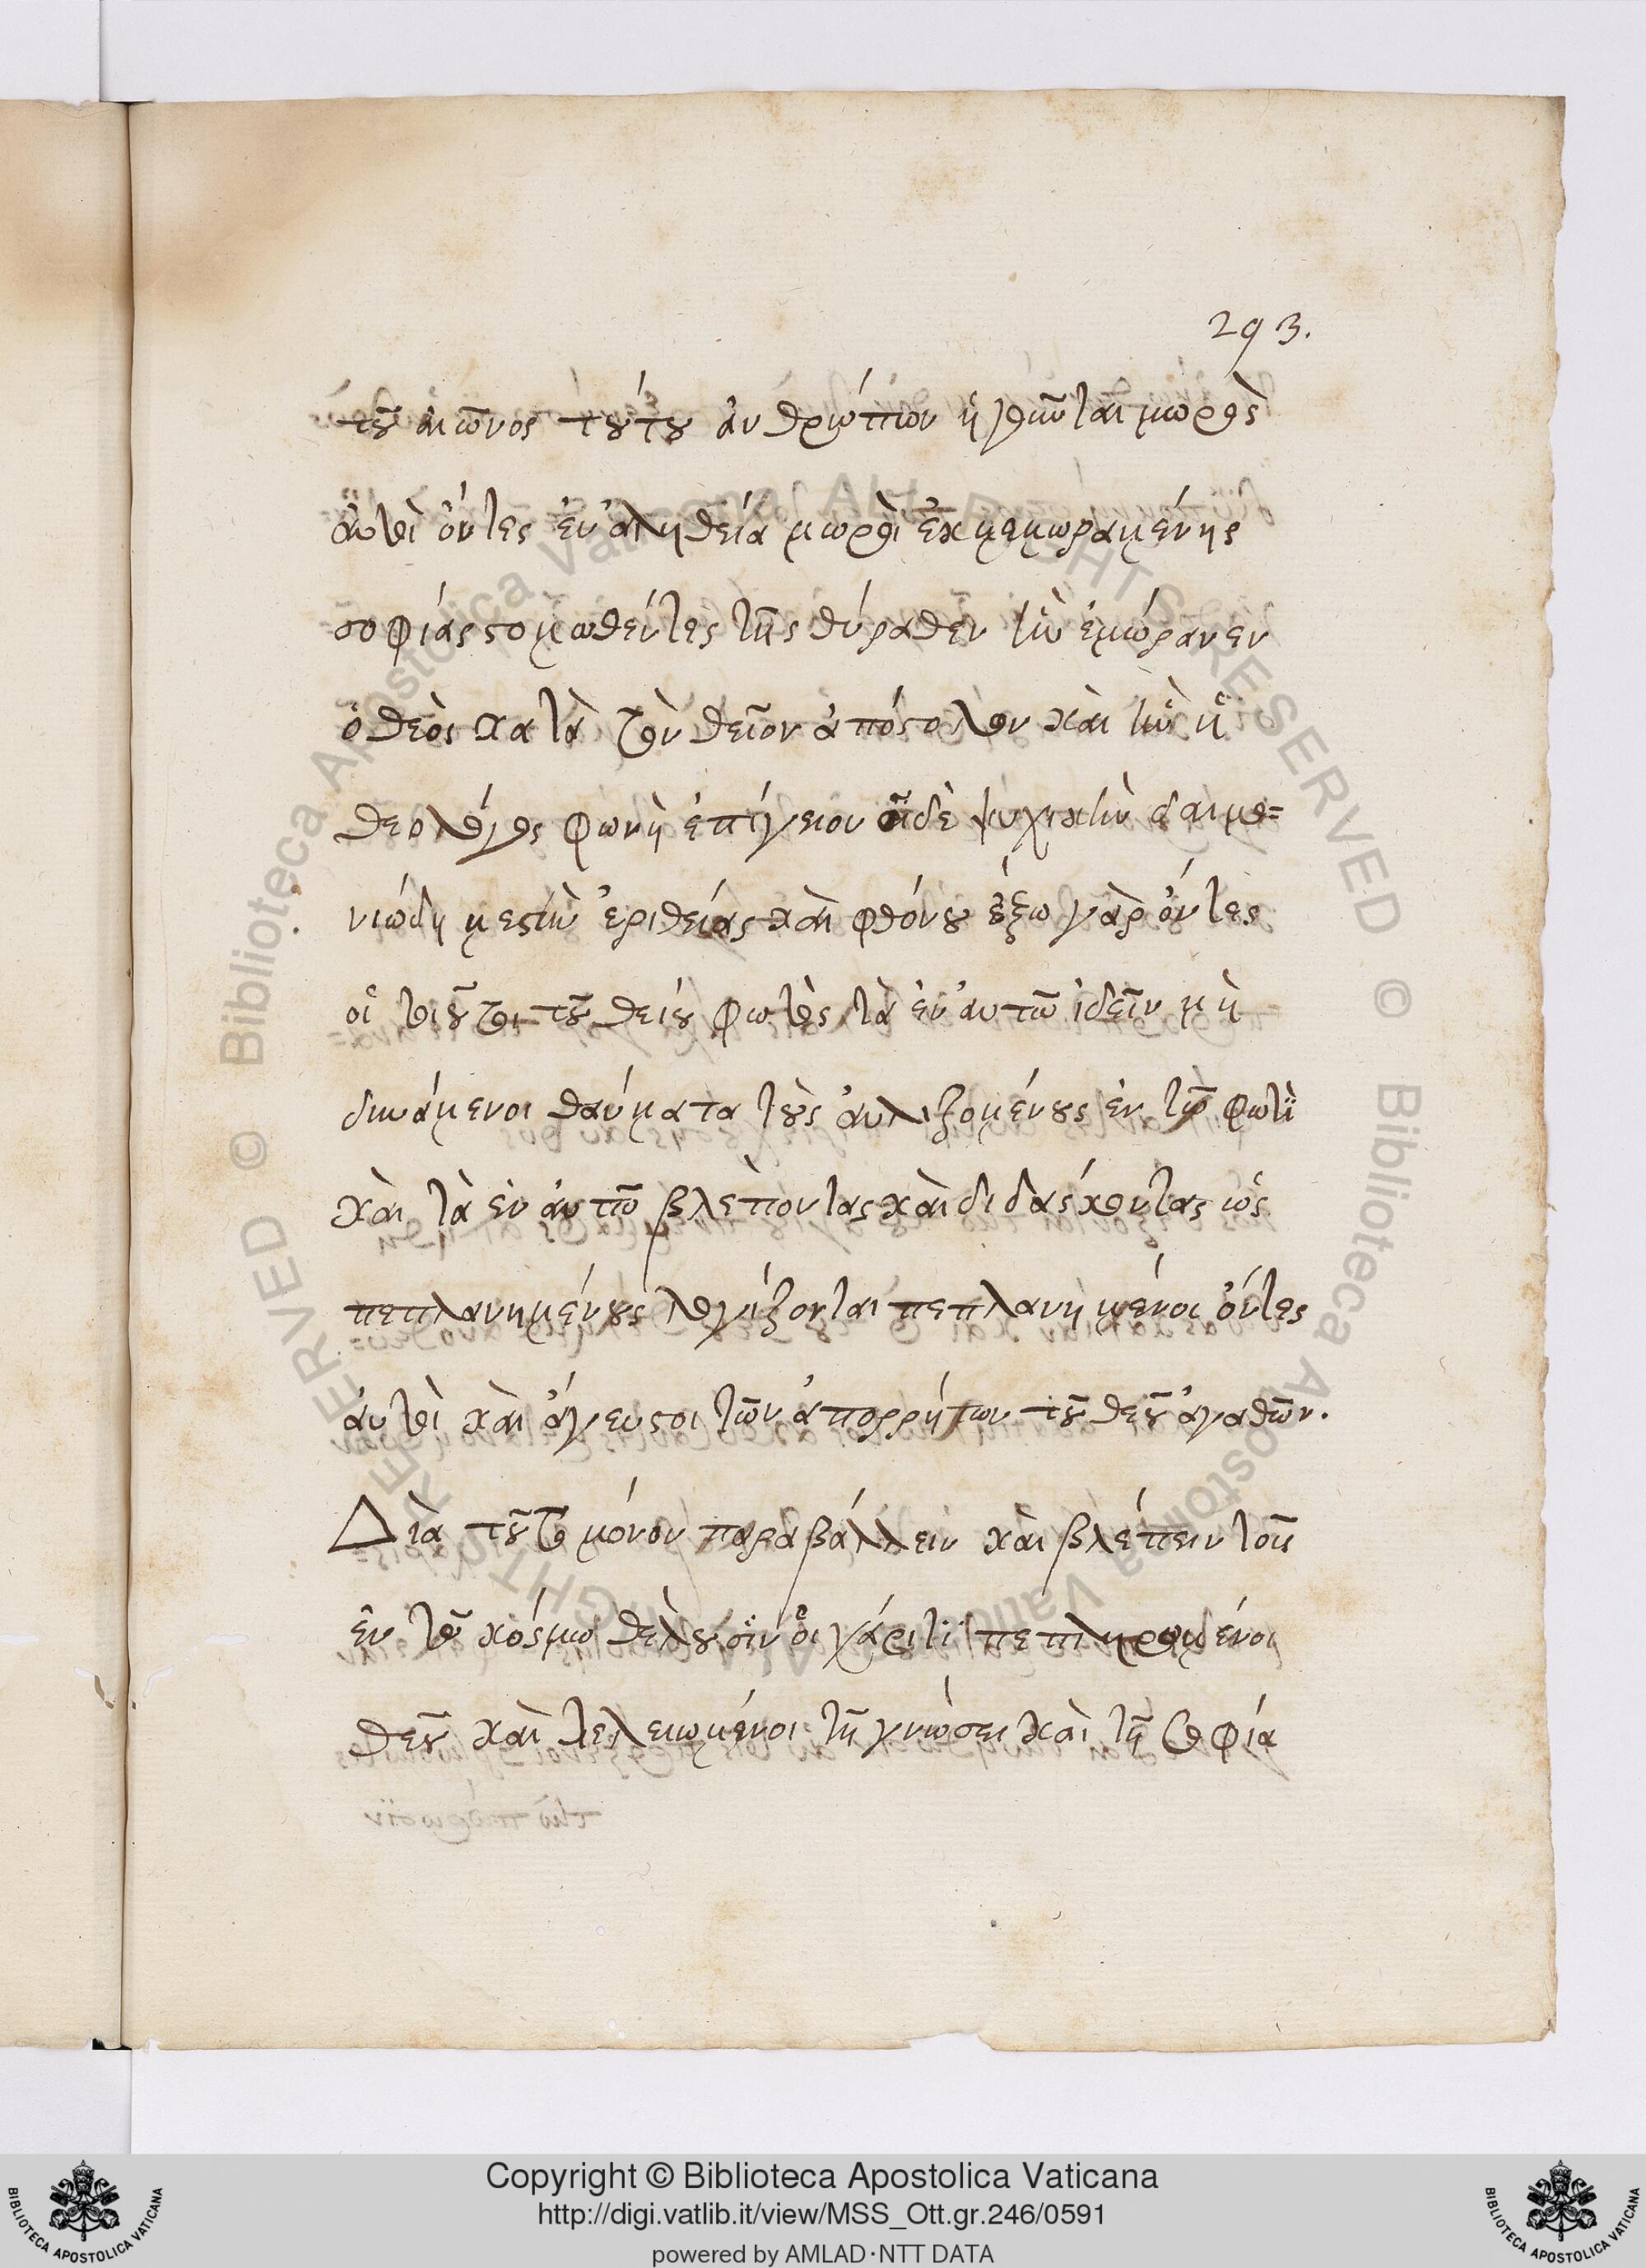 293.
τοῦ αἰῶνος τούτου ἀνθρώπων ἡγοῦνται μωροὺς
ἀυτοὶ ὄντες ἐν ἀληθεία μωροὶ ἐκ μεμωραμένης
σοφιάς στομωθέντες τῆς θύραθεν ἣν ἐμώρανεν
ὁ θεὸς κατὰ τὸν θεῖον ἀπόστολον καὶ ἣν ἡ
θεολόγος φωνὴ ἐπίγειον οἶδε ψυχικὴν δαιμο=
νιώδη μεστὴν ἐριθείας καὶ φθόνου ἔξω γὰρ ὄντες
οἱ τοιοῦτοι τοῦ θείου φωτὸς τὰ ἐν αυτῶ ἰδεῖν μὴ
δυνάμενοι θαύματα τοὺς ἀυλιζομένους ἐν τῶ φωτὶ
καὶ τὰ ἐν ἀυτῶ βλέποντας καὶ διδάσκοντας ὡς
πεπλανημένους λογίζονται πεπλανημένοι ὄντες
ἀυτοὶ καὶ ἄγευστοι τῶν ἀπορρήτων τοῦ θεοῦ ἀγαθῶν.
Διὰ τοῦτο μόνον παραβάλλειν καὶ βλέπειν τοῖς
ἐν τῶ κόσμω θέλουσιν οἱ χάριτι πεπληρωμένοι
θεοῦ καὶ τελειωμένοι τῆ γνώσει καὶ τῆ σοφία
© Biblioteca Apostolica Vaticana ALL RIGHTS RESERVED © Biblioteca Apostolica Vaticana ALL RIGHTS RESERVED
Copyright © Biblioteca Apostolica Vaticana
http://digi.vatlib.it/view/MSS_Ott.gr.246/0591
powered by AMLAD·NTT DATA
BIBLIOTECA APOSTOLICA VATICANA
BIBLIOTECA APOSTOLICA VATICANA